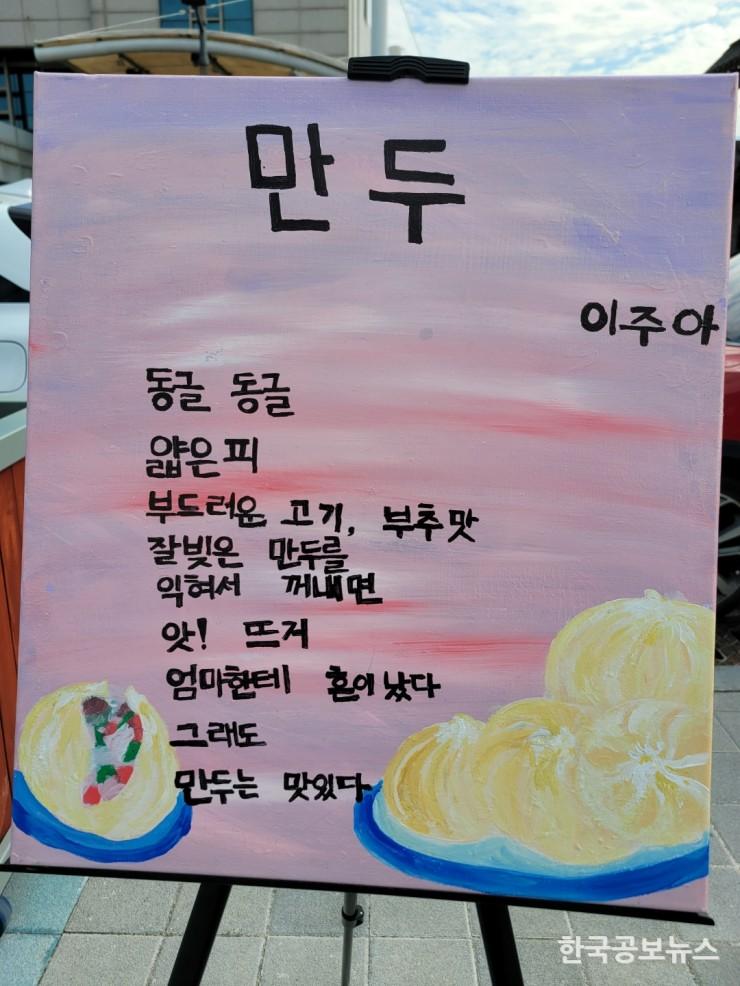 만두
이주아
동글 동글
얇은피
부드러운 고기, 부추맛
잘빚은 만두를
익혀서 꺼내면
앗! 뜨거
엄마한테 혼이 났다
그래도
만두는 맛있다
한국공보뉴스